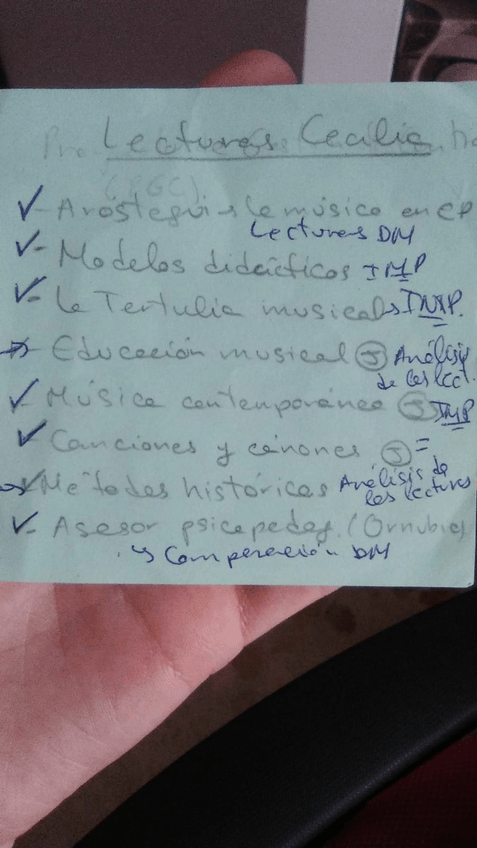 Lecturas Cecilia
(PGC)
✓- Aróstegui → la música en EP
Lecturas DM
✓- Modelos didácticos IMP
✓- La Tertulia musical → IMP.
→- Educación musical ③ Análisis
de las lect.
✓- Música contemporánea ③ IMP
✓- Canciones y cánones ③ =
→✓- Métodos históricos Análisis de
las lecturas
✓- Asesor psicopedag. (Ornubia)
↳ Comparación DM